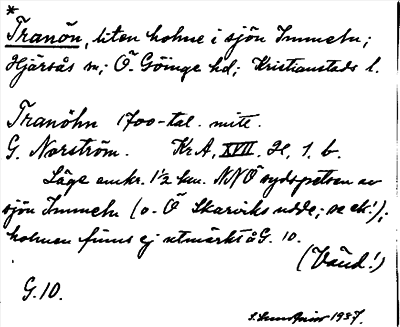 *
Tranön, liten holme i sjön Immeln;
Hjärsås sn; Ö. Göinge hd; Kristianstads l.
Tranöhn 1700-tal. mitt.
G. Norström. KrA, XVII. H, 1. b.
Läge omkr. 1 1/2 km. NNÖ sydspetsen av
sjön Immeln (o. Ö Skarviks udde; se ek!);
holmen finns ej utmärkt å G. 10.
(Vänd!)
G. 10.
1937.